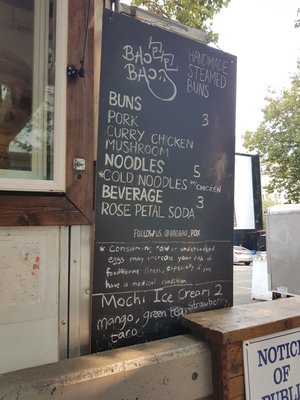 BAO BAO
HANDMADE
STEAMED
BUNS
BUNS
PORK 3
CURRY CHICKEN
MUSHROOM
NOODLES 5
*COLD NOODLES W/CHICKEN
BEVERAGE 3
ROSE PETAL SODA
FOLLOW US @BAOBAO_PDX
* Consuming raw or undercooked
eggs may increase your risk of
foodborne illness, especially if you
have a medical condition.
Mochi Ice Cream 2
mango, green tea, strawberry
taro
NOTICE
OF
PUBLIC